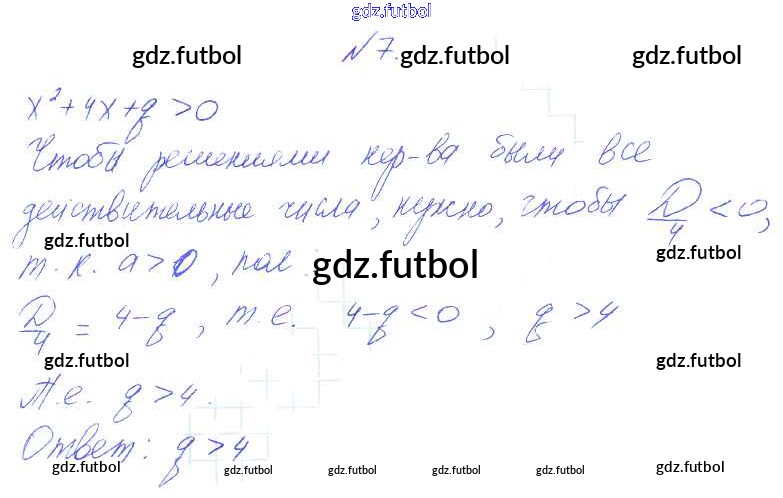 gdz.futbol
gdz.futbol №7. gdz.futbol gdz.futbol
x²+4x+q>0
Чтобы решениями нер-ва были все
действительные числа, нужно, чтобы D/4 <0,
gdz.futbol gdz.futbol
т.к. a>0, gdz.futbol
D/4 = 4-q, т.е. 4-q<0, q>4
gdz.futbol gdz.futbol
Т.е. q>4.
Ответ: q>4
gdz.futbol gdz.futbol gdz.futbol gdz.futbol gdz.futbol gdz.futbol